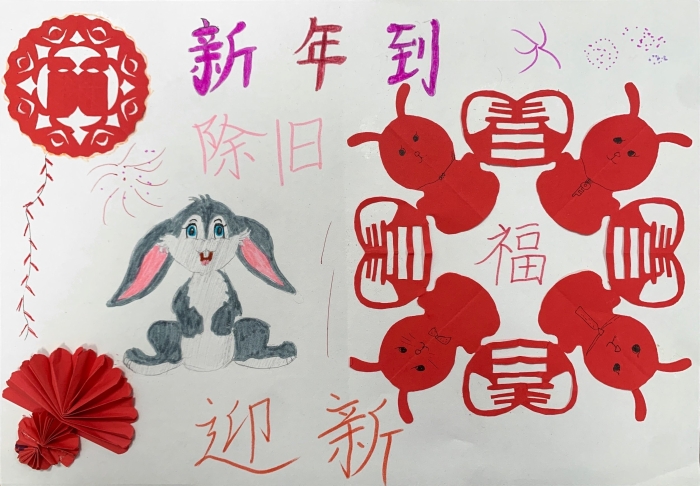 新年到
除旧
春
春 福 春
春
迎新